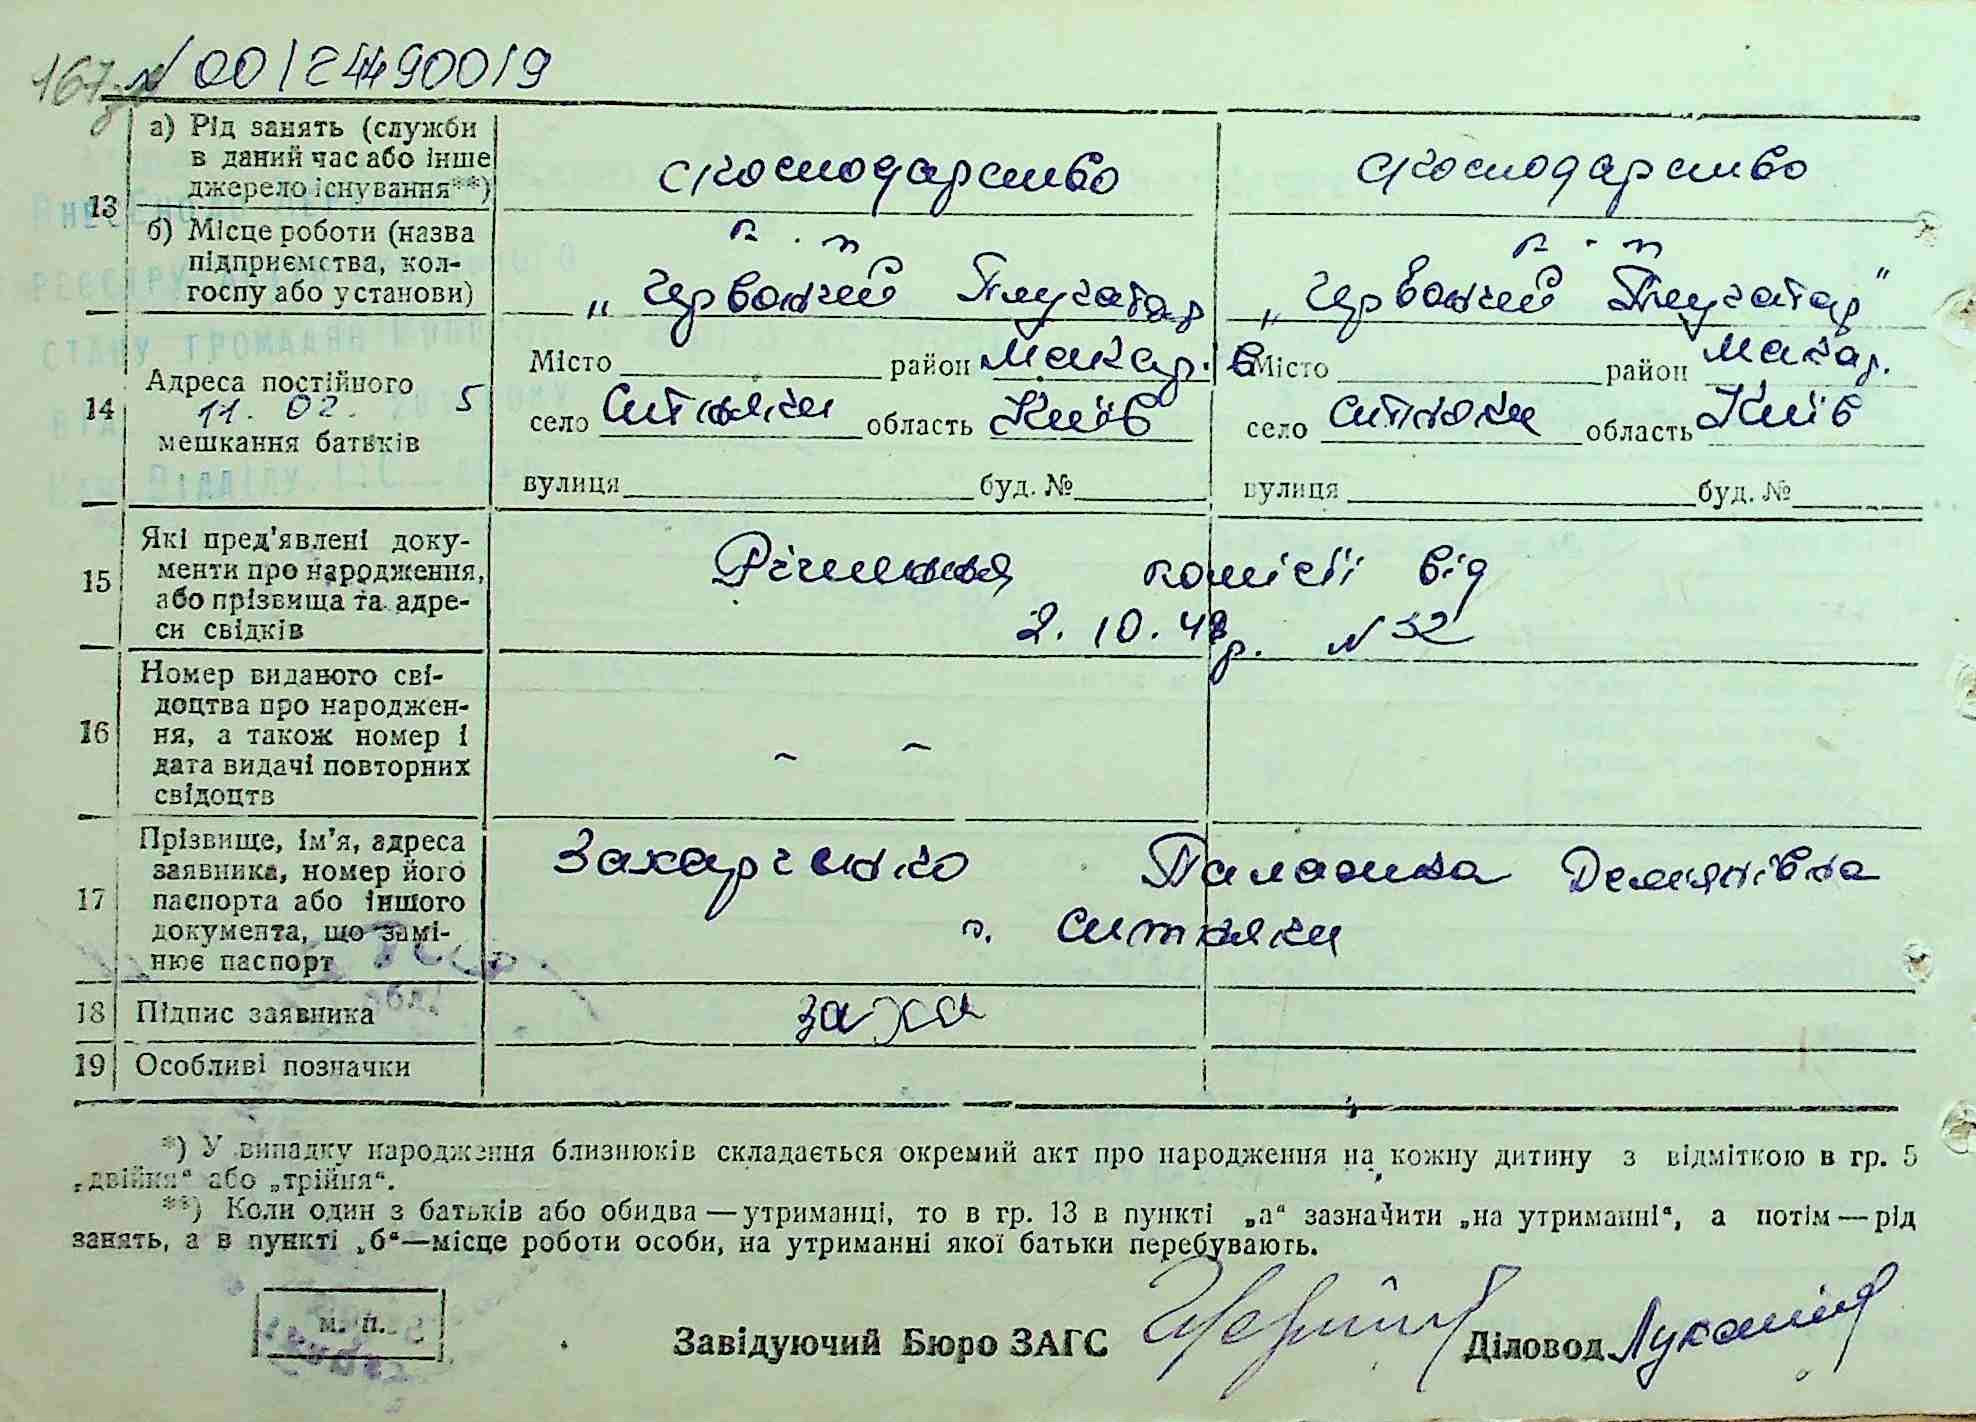 167 № 00124490019
13
а) Рід занять (служби в даний час або інше джерело існування**)
с/господарство
с/господарство
б) Місце роботи (назва підприємства, колгоспу або установи)
к-п
„Червоний Плугатар
к-п
„Червоний Плугатар"
14
Адреса постійного
11. 02. 5
мешкання батьків
Місто район Макар. Місто район Макар.
село Ситняки область Київ село Ситняки область Київ
вулиця буд. № вулиця буд. №
15
Які пред'явлені доку-
менти про народження,
або прізвища та адре-
си свідків
Рішення комісії від
2.10.48 р. № 32
16
Номер виданого сві-
доцтва про народжен-
ня, а також номер і
дата видачі повторних
свідоцтв
17
Прізвище, ім'я, адреса
заявника, номер його
паспорта або іншого
документа, що замі-
нює паспорт
Захарченко Палажка Демянівна
с. Ситняки
18 Підпис заявника Заха
19 Особливі позначки
*) У випадку народження близнюків складається окремий акт про народження на кожну дитину з відміткою в гр. 5
„двійня“ або „трійня“.
**) Коли один з батьків або обидва — утриманці, то в гр. 13 в пункті „а“ зазначити „на утриманні“, а потім — рід
занять, а в пункті „б“—місце роботи особи, на утриманні якої батьки перебувають.
м. п.
Завідуючий Бюро ЗАГС Діловод